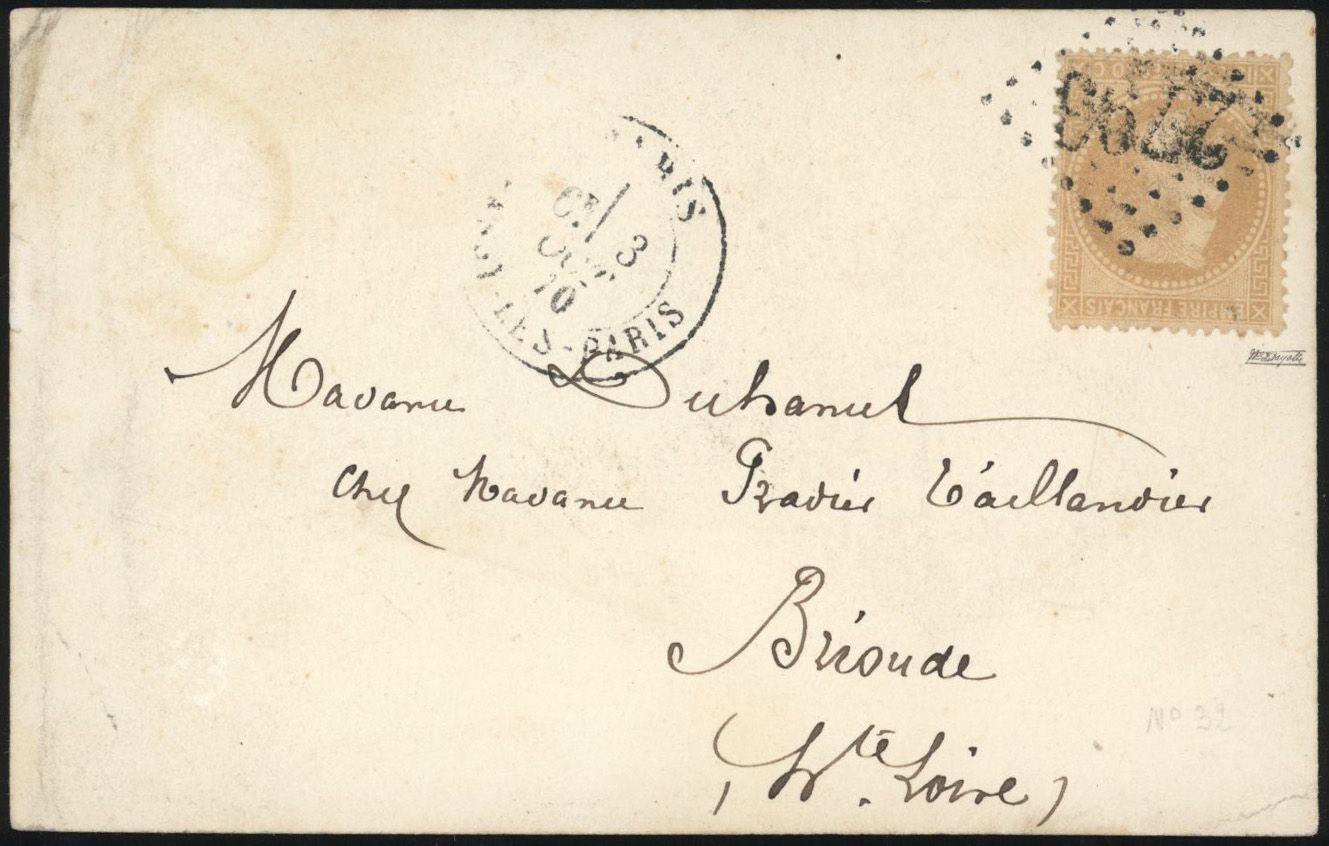 PARIS
6E / 3
OCT.
70
LES-PARIS
2795
PIRE FRANCAIS
Madame Duhamel
Chez Madame Gradier Taillandier
Brioude
(Hte. Loire)
No 32